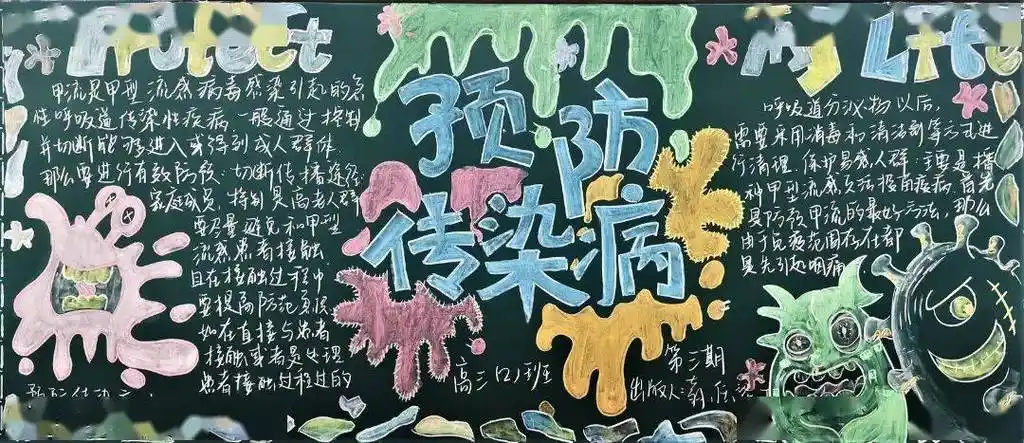 Protect
My Life
预防
传染病
甲流是甲型流感病毒感染引起的急
性呼吸道传染性疾病,一般通过控制
并切断
进入或得到成人群体,
那么要进行有效防疫,切断传播途径,
家庭成员,特别是高老人群
要尽量避免和甲型
流感患者接触,
且在接触过程中
要提高防范意识
如在直接与患者
接触或者是处理
患者接触过程过的
呼吸道分泌物以后,
需要采用消毒和清洁剂等方式进
行清理,保护易感人群:主要是播
种甲型流感灭活疫苗疫病,首先
是防预甲流的最好方法,那么
由于免疫范围在任都
是先引起咽痛
高三(2)班
第三期
出版人: